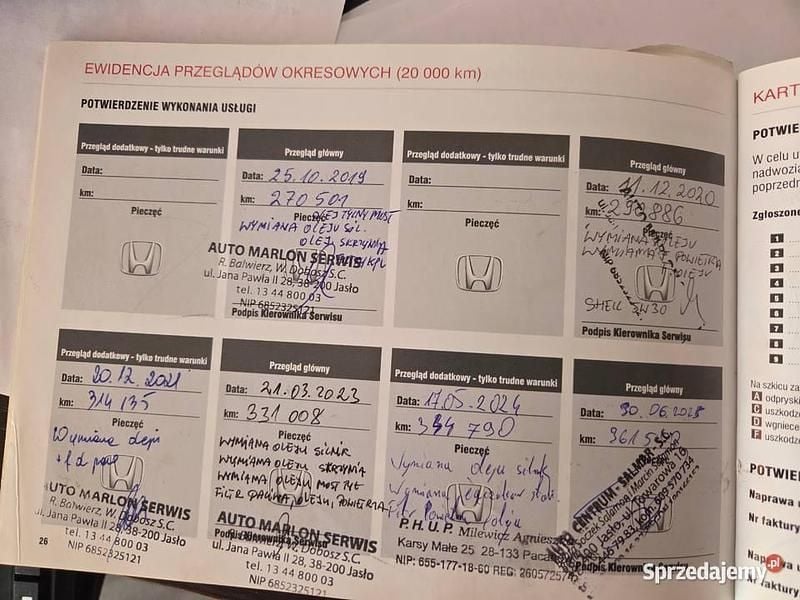 EWIDENCJA PRZEGLĄDÓW OKRESOWYCH (20 000 km)
POTWIERDZENIE WYKONANIA USŁUGI
Przegląd dodatkowy - tylko trudne warunki
Data:
km:
Pieczęć
Przegląd główny
Data: 25.10.2019
km: 270 501
Pieczęć
OLEJ TYLNY MOST
WYMIANA OLEJU SIL.
OLEJ SKRZYNIA
AUTO MARLON SERWIS
R. Balwierz, W. Dobosz S.C.
ul. Jana Pawła II 28, 38-200 Jasło
tel. 13 44 800 03
NIP 6852325121
Podpis Kierownika Serwisu
Przegląd dodatkowy - tylko trudne warunki
Data:
km:
Pieczęć
Przegląd główny
Data: 11.12.2020
km: 293886
Pieczęć
WYMIANA OLEJU
WYMIANA POWIETRZA
OLEJU
SHELL 5W30
Podpis Kierownika Serwisu
Przegląd dodatkowy - tylko trudne warunki
Data: 20.12.2021
km: 314 135
Pieczęć
Wymiana oleju
AUTO MARLON SERWIS
R. Balwierz, W. Dobosz S.C.
ul. Jana Pawła II 28, 38-200 Jasło
tel. 13 44 800 03
NIP 6852325121
26
Przegląd główny
Data: 21.03.2023
km: 331 008
Pieczęć
WYMIANA OLEJU SILNIK
WYMIANA OLEJU SKRZYNIA
WYMIANA OLEJU MOST TYŁ
FILTR PALIWA, OLEJU, POWIETRZA
AUTO MARLON SERWIS
Podpis Kierownika Serwisu
R. Balwierz, W. Dobosz S.C.
ul. Jana Pawła II 28, 38-200 Jasło
tel. 13 44 800 03
NIP 6852325121
Przegląd dodatkowy - tylko trudne warunki
Data: 17.05.2024
km: 344 790
Pieczęć
Wymiana oleju silnik
Wymiana
P.H.U.P. Milewicz Agnieszka
Karsy Małe 25 28-133 Pacan
NIP: 655-177-18-60 REG: 2605725
Przegląd główny
Data: 30.06.2025
km: 361 5
Podpis Kierownika Serwisu
KART
POTWIE
W celu u
nadwozia
poprzedn
Zgłoszone
1
2
3
4
5
6
7
8
9
Na szkicu za
A odpryski
C uszkodz
D wgniece
F uszkodz
POTWIE
Naprawa w
Nr faktury
Naprawa w
Nr faktury
Sprzedajemy.pl